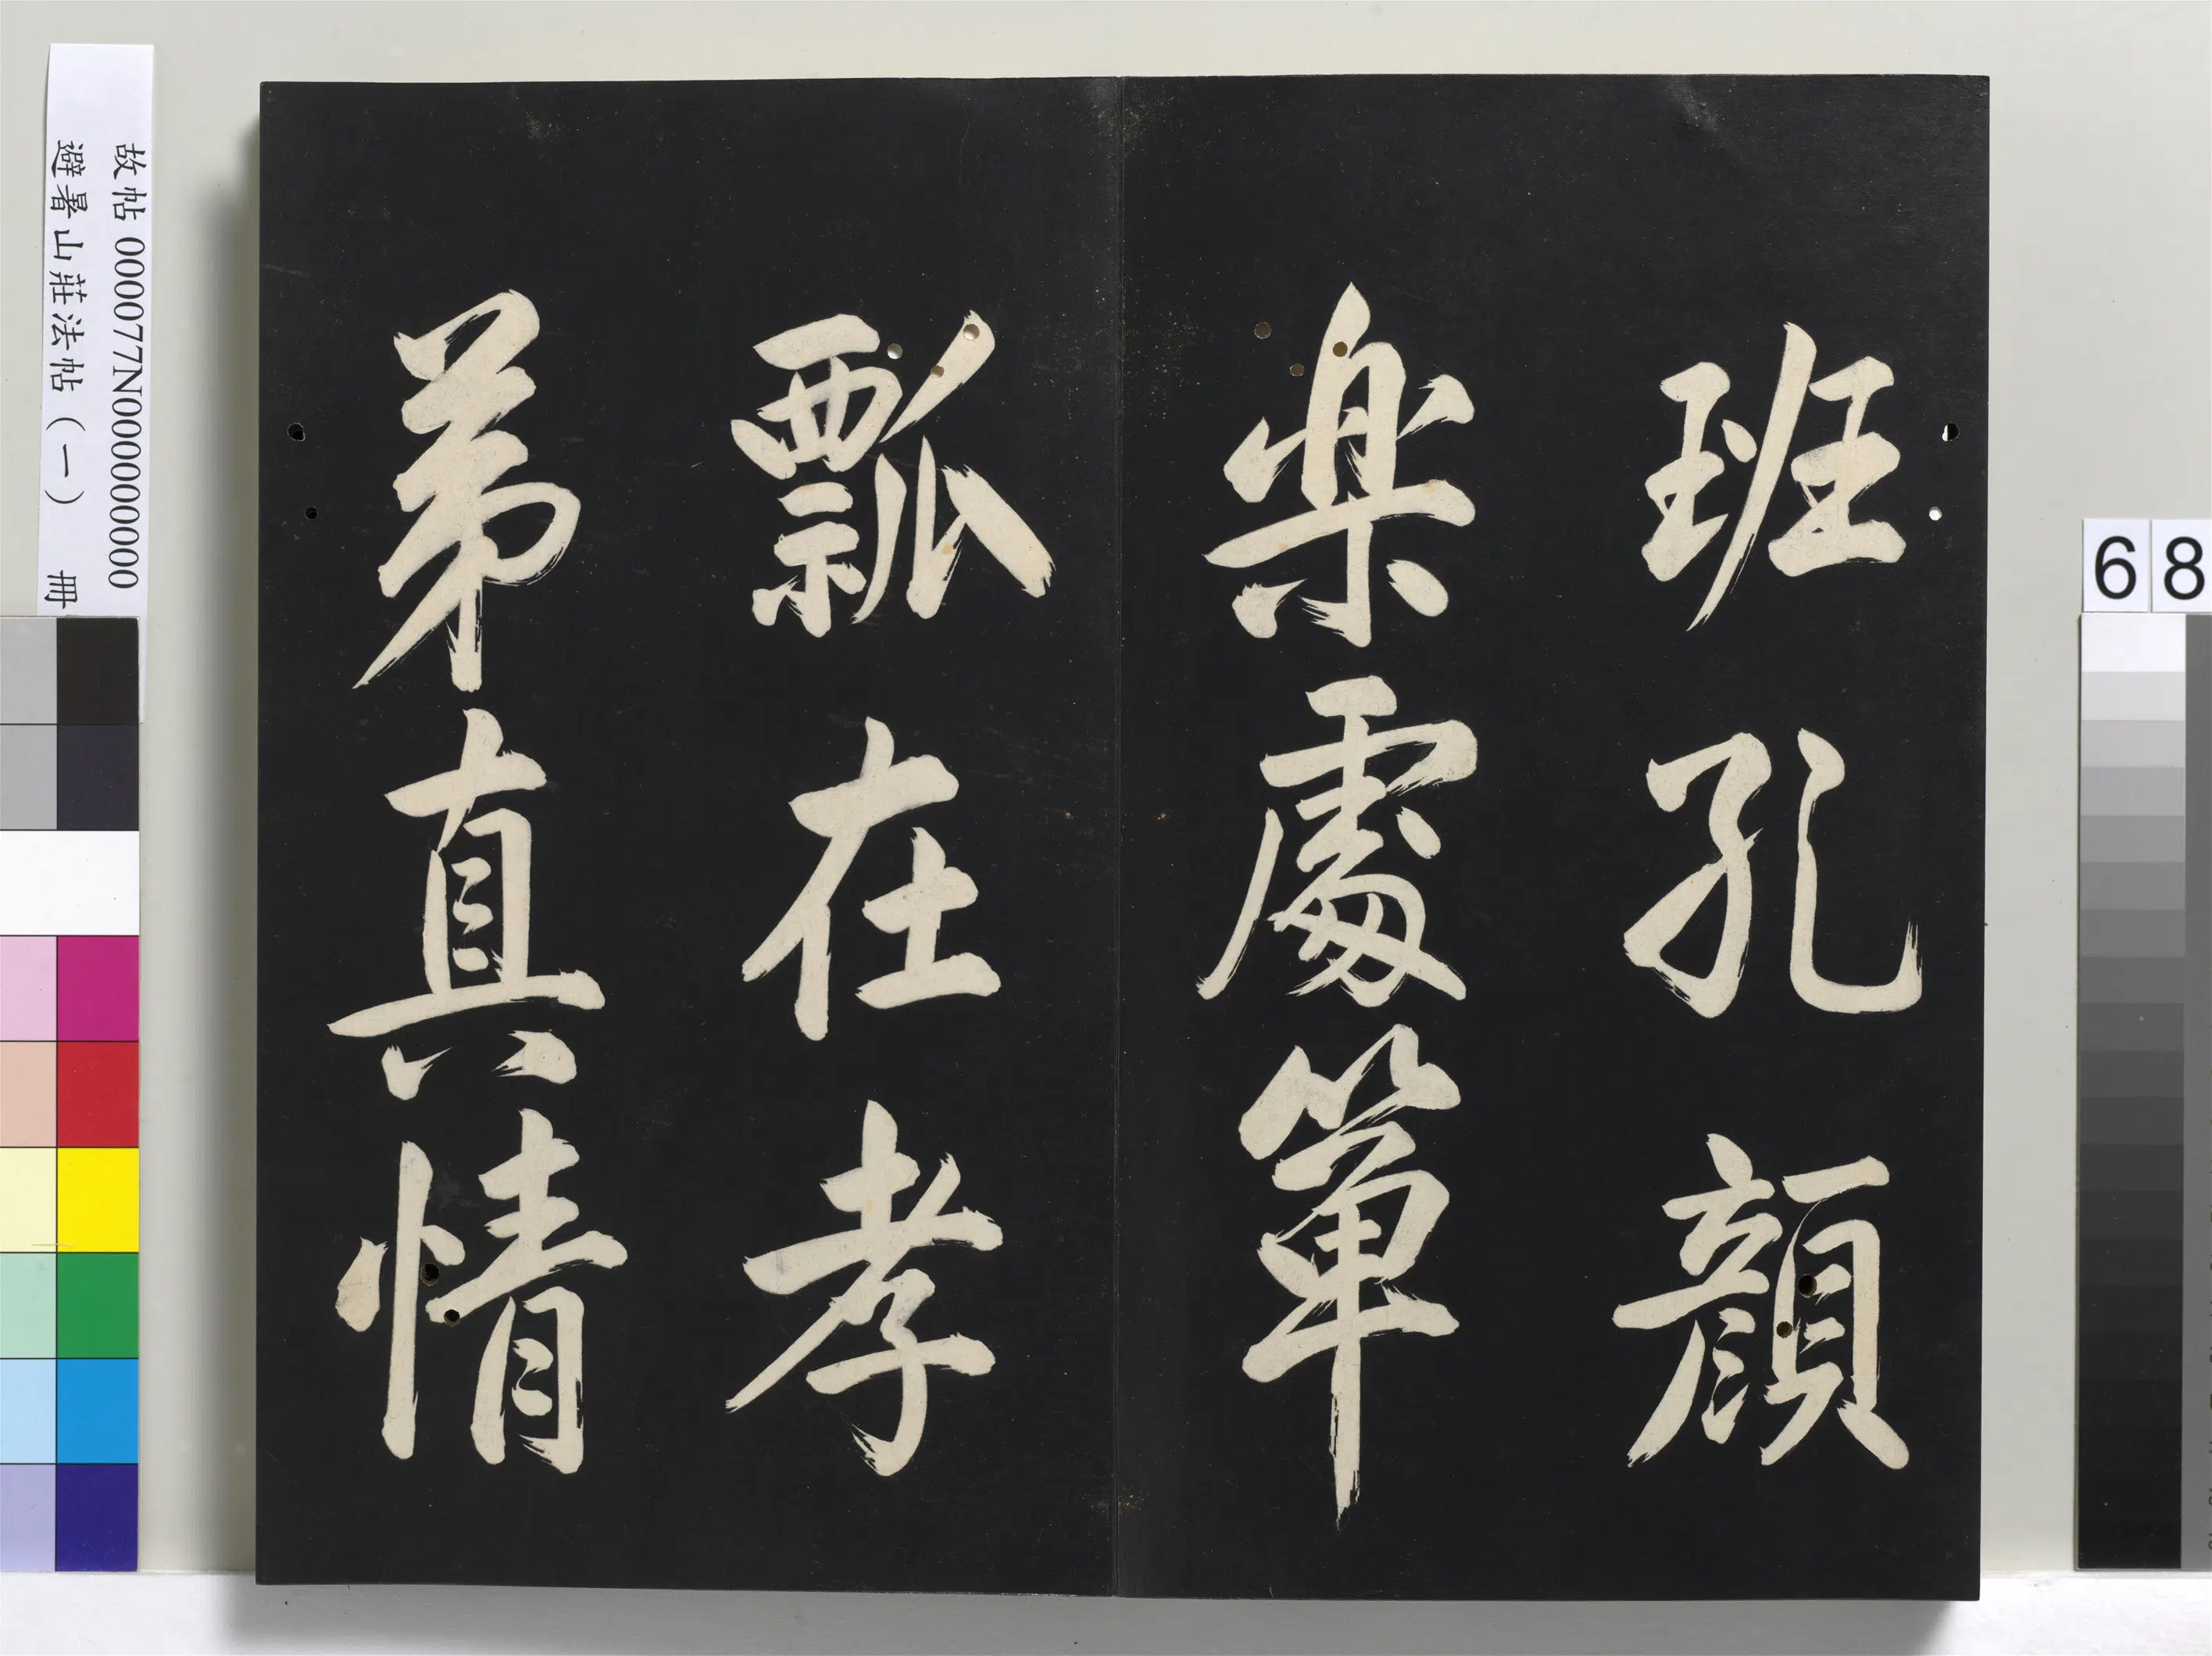 班孔顔
樂處簞
瓢在孝
弟真情
故帖 000077N000000000
避暑山莊法帖（一） 冊
68